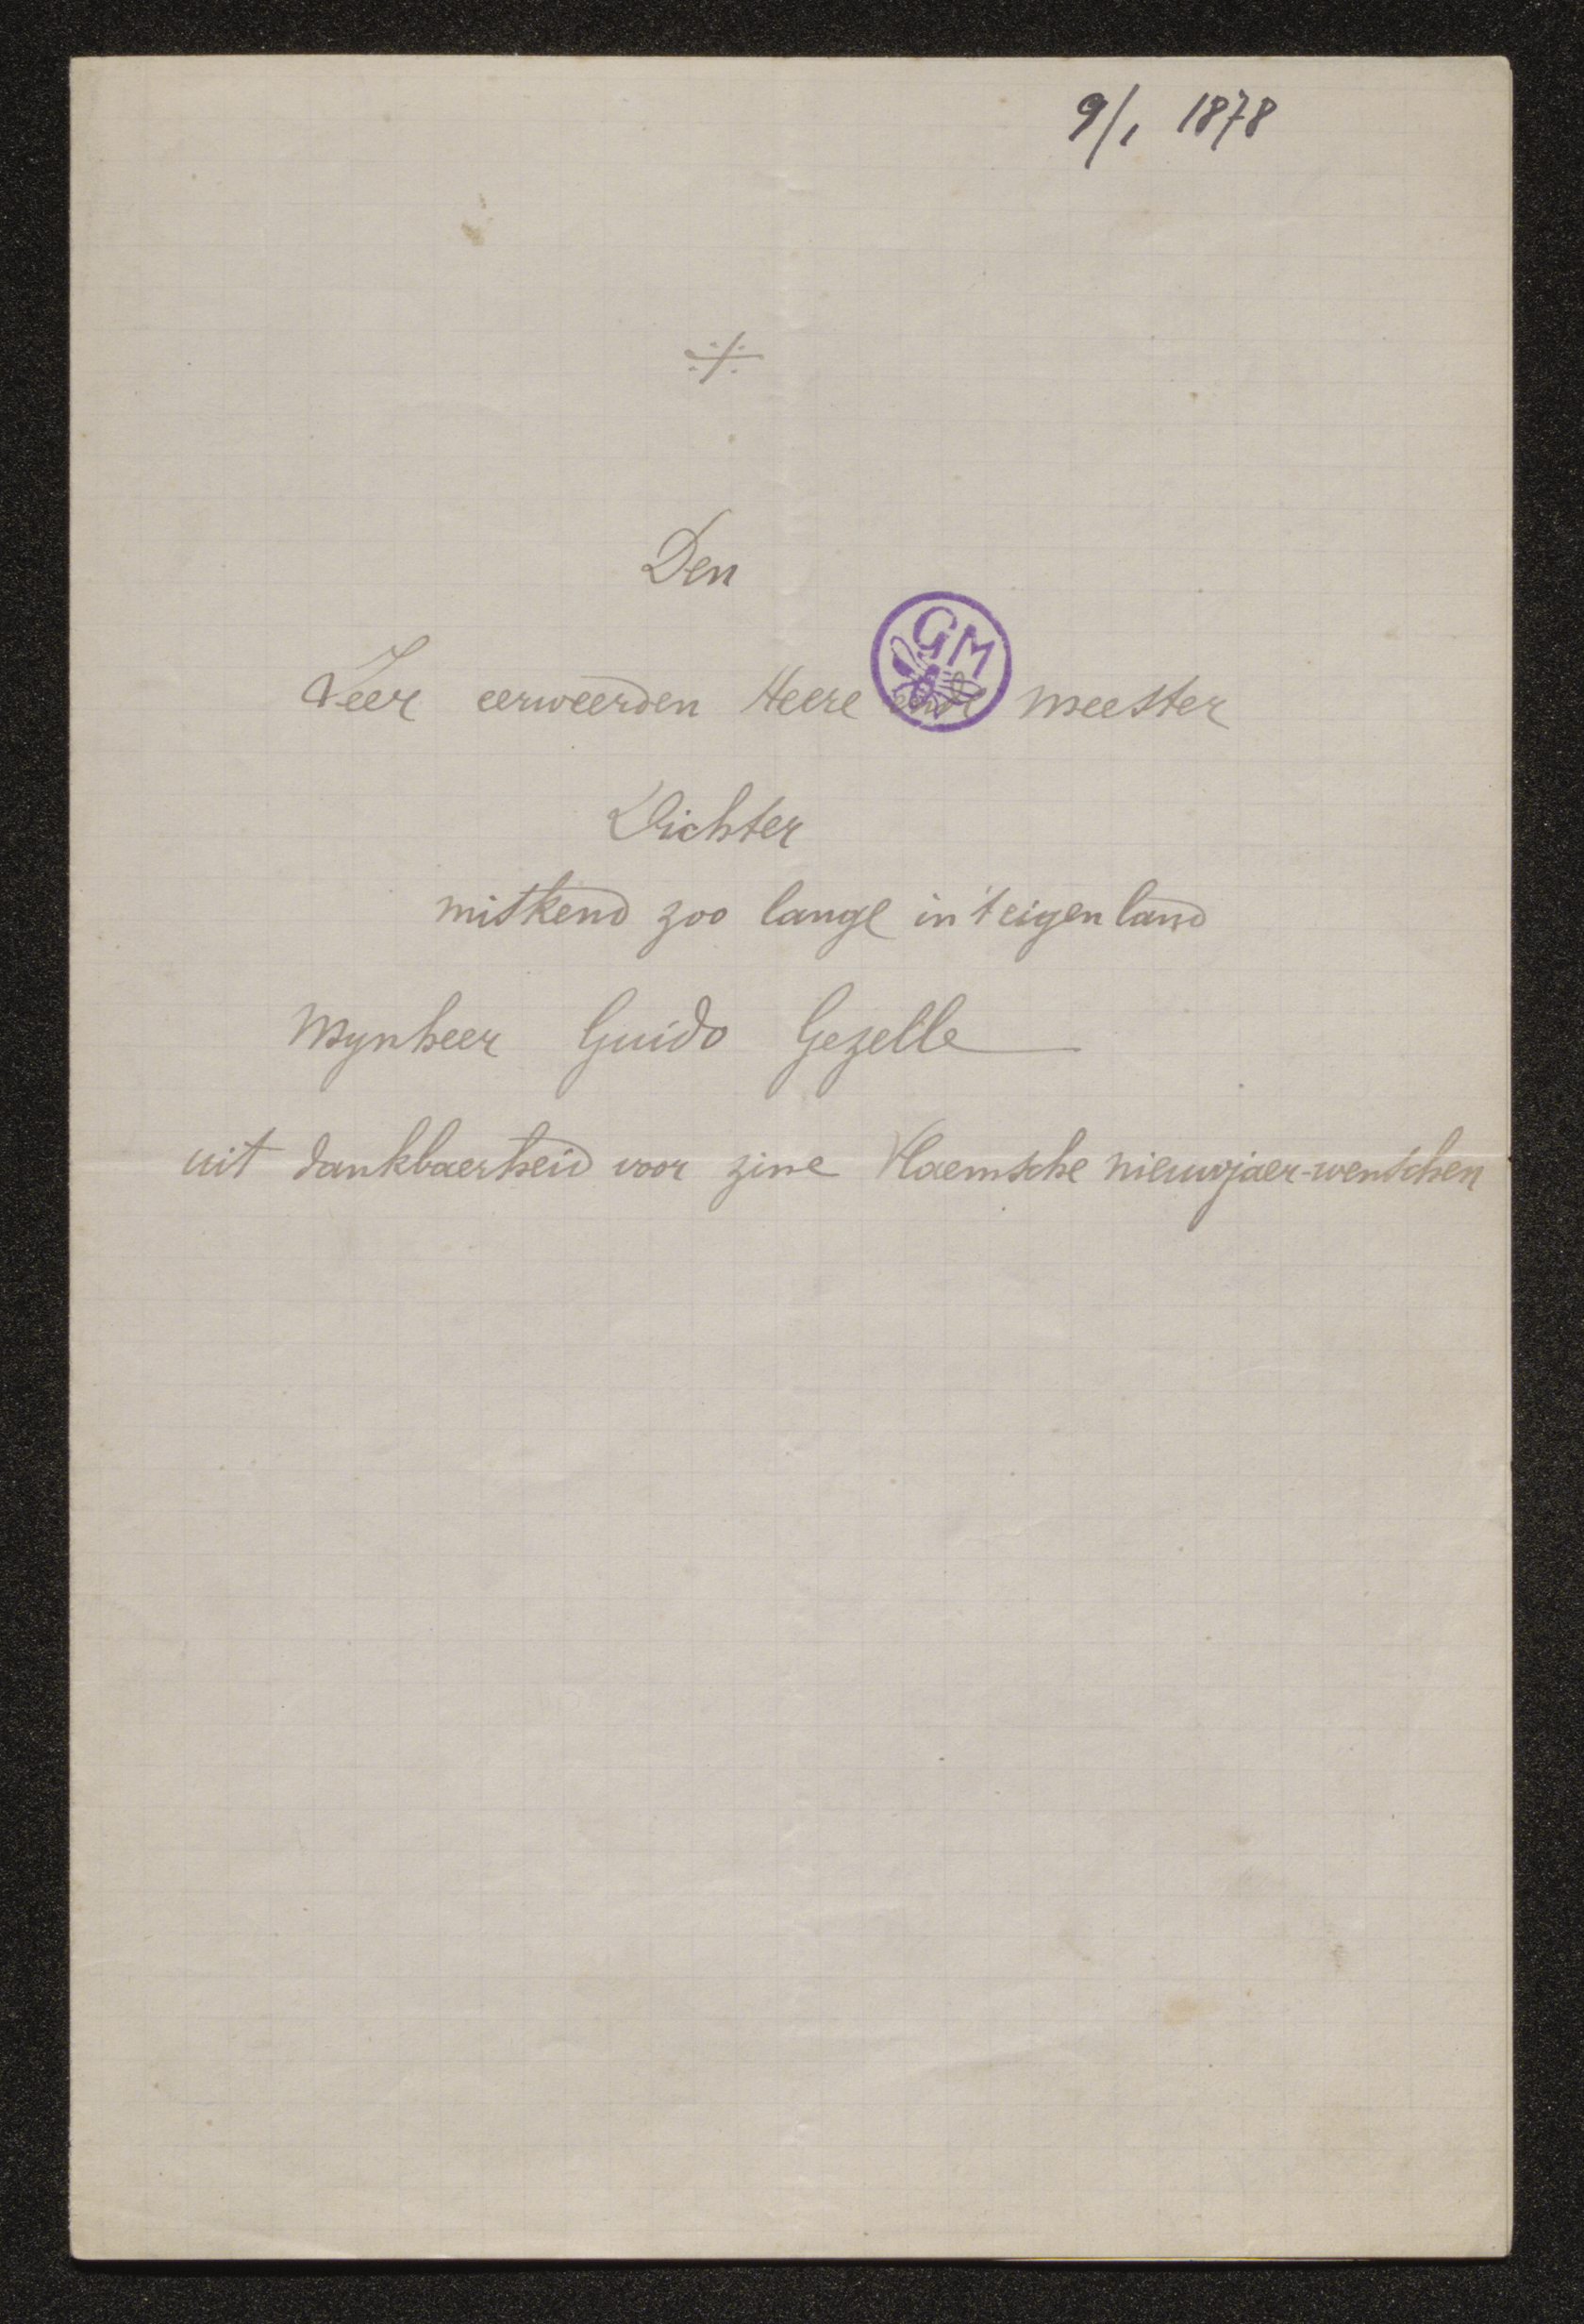 9/1 1878
Den
GM
Zeer eerweerden Heere ende meester
Dichter
miskend zoo lange in 't eigen land
Mynheer Guido Gezelle
uit dankbaerheid voor zine Vlaemsche nieuwjaer-wenschen